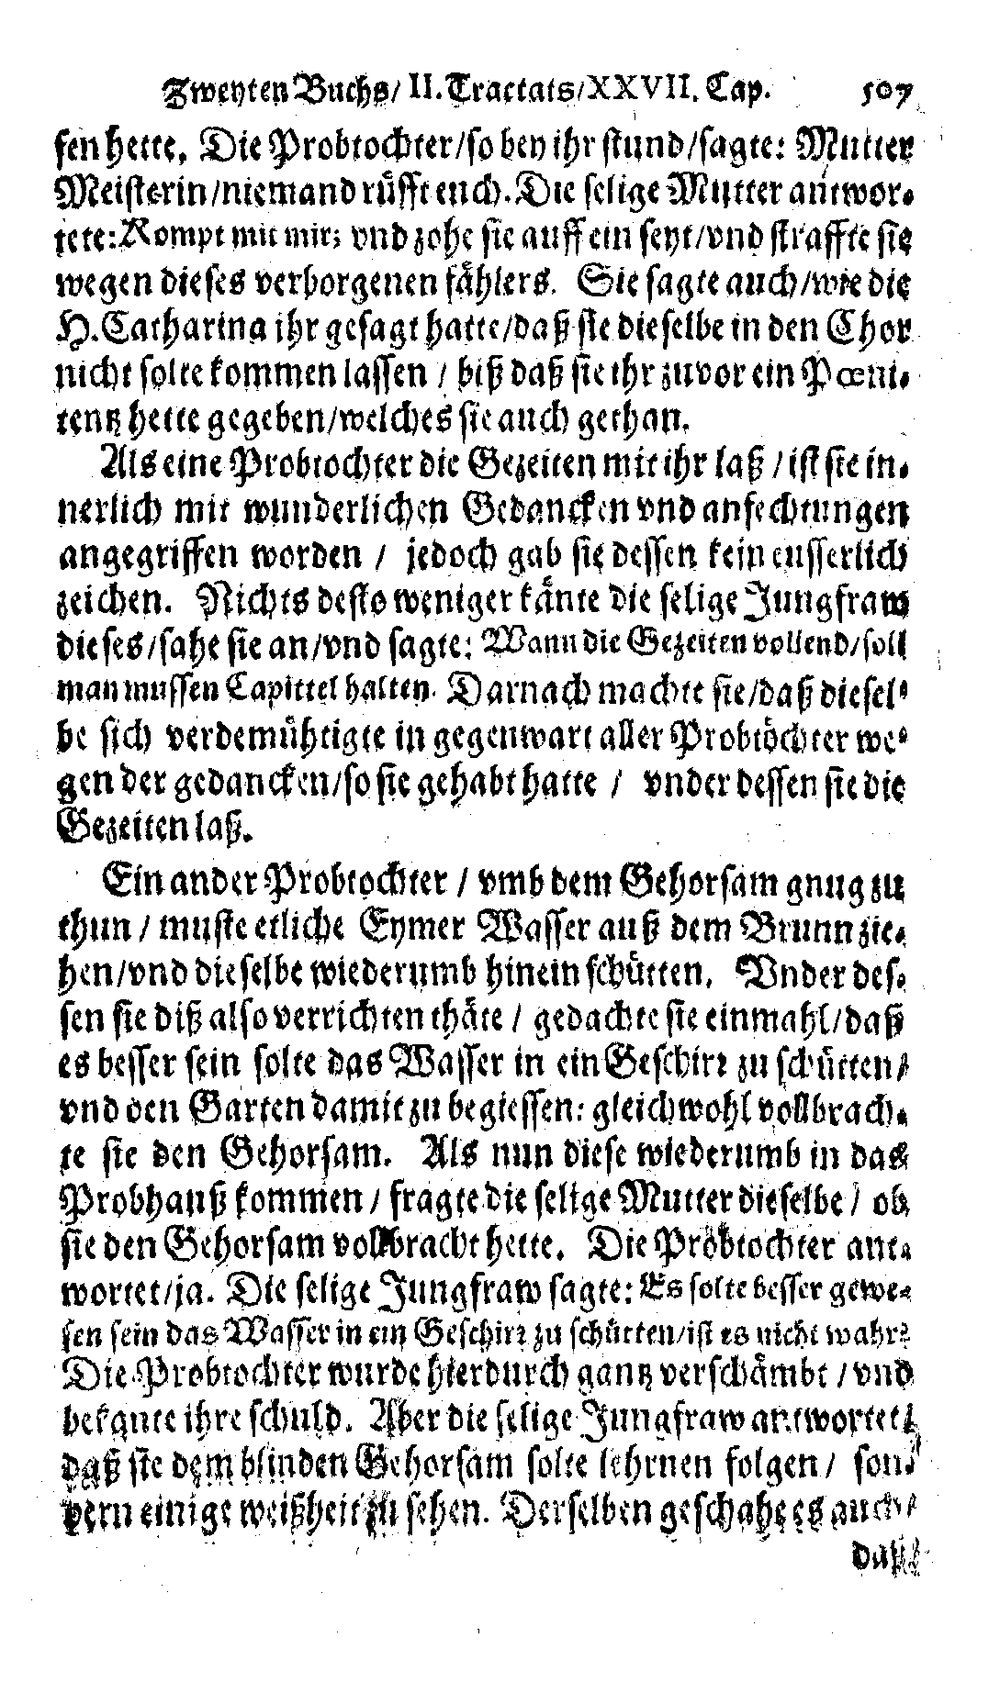 Zweyten Buchs/ II. Tractats/ XXVII. Cap. 507
sen hette. Die Probtochter/ so bey ihr stund/ sagte: Mutter
Meisterin/ niemand rüfft euch. Die selige Mutter antwor-
tete: Kompt mit mir; vnd zohe sie auff ein seyt/ vnd straffte sie
wegen dieses verborgenen fählers. Sie sagte auch/ wie die
H. Catharina ihr gesagt hatte/ daß sie dieselbe in den Chor
nicht solte kommen lassen / biß daß sie ihr zuvor ein Pœni-
tentz hette gegeben/ welches sie auch gethan.
Als eine Probtochter die Gezeiten mit ihr laß / ist sie in-
nerlich mit wunderlichen Gedancken vnd anfechtungen
angegriffen worden / jedoch gab sie dessen kein eusserlich
zeichen. Nichts desto weniger känte die selige Jungfraw
dieses/ sahe sie an/ vnd sagte: Wann die Gezeiten vollend/ soll
man mussen Capittel halten. Darnach machte sie/ daß diesel-
be sich verdemühtigte in gegenwart aller Probtöchter we-
gen der gedancken/ so sie gehabt hatte / vnder dessen sie die
Gezeiten laß.
Ein ander Probtochter / vmb dem Gehorsam gnug zu
thun / muste etliche Eymer Wasser auß dem Brunn zie-
hen/ vnd dieselbe wiederumb hinein schütten. Vnder des-
sen sie diß also verrichten thäte / gedachte sie einmahl/ daß
es besser sein solte das Wasser in ein Geschirr zu schütten/
vnd den Garten damit zu begiessen: gleichwohl vollbrach-
te sie den Gehorsam. Als nun diese wiederumb in das
Probhauß kommen / fragte die selige Mutter dieselbe / ob
sie den Gehorsam vollbracht hette. Die Probtochter ant-
wortet/ ja. Die selige Jungfraw sagte: Es solte besser gewe-
sen sein das Wasser in ein Geschirr zu schütten/ ist es nicht wahr?
Die Probtochter wurde hierdurch gantz verschämbt / vnd
bekante ihre schuld. Aber die selige Jungfraw antwortet/
daß sie dem blinden Gehorsam solte lehrnen folgen / son-
dern einige weißheit zu sehen. Derselben geschahe es auch/
daß